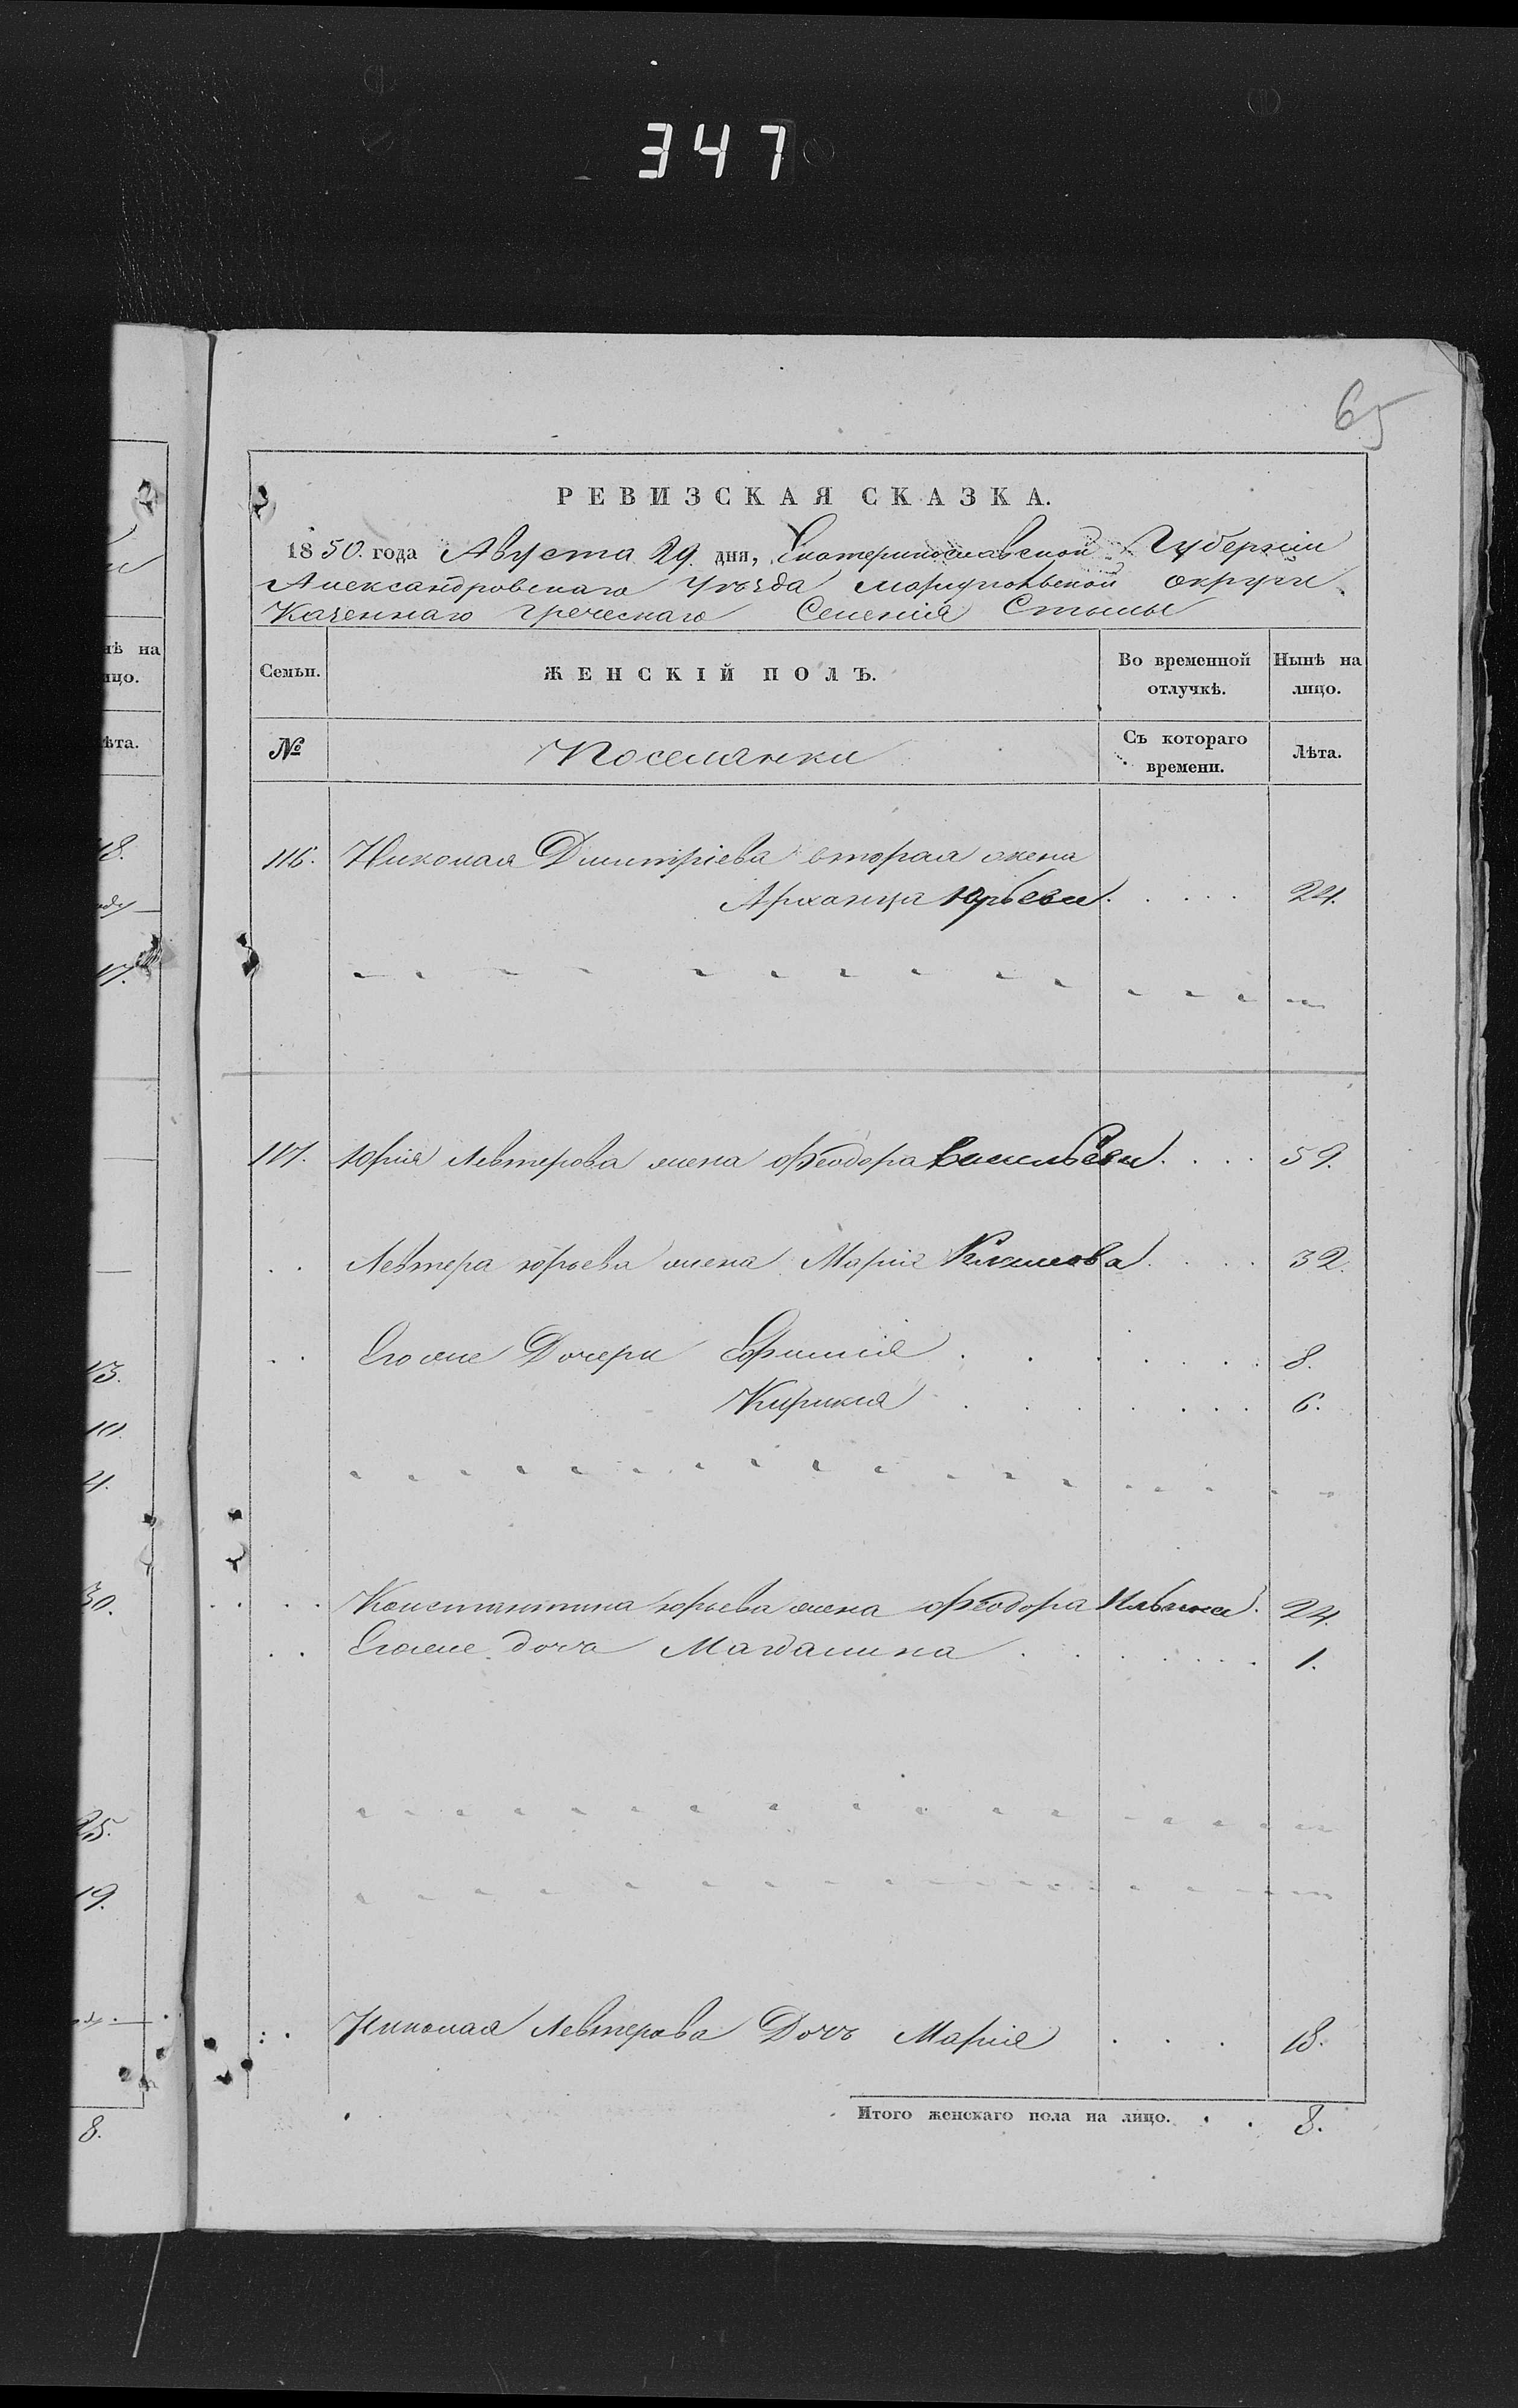 347
65
РЕВИЗСКАЯ СКАЗКА.
1850. года Августа 29. дня, Екатеринославской Губерніи
Александровскаго Уѣзда Маріупольской округи
Казеннаго Греческаго Селенія Стылы
Семьи. ЖЕНСКІЙ ПОЛЪ. Во временной отлучкѣ. Нынѣ на лицо.
№ Поселянки Съ котораго времени. Лѣта.
116. Николая Дмитріева вторая жена
Архонца Юрьева 24.
117. Юрія Левтерова жена Феодора Васильева 59.
Левтера Юрьева жена Марія 32.
Егоже Дочери Софишія 8.
Кирикія 6.
Константина Юрьева жена Феодора Ильина 24.
Егоже дочь Магдалина 1.
Николая Левтерова Дочь Марія 18.
Итого женскаго пола на лицо. 8.
нѣ на
ицо.
ѣта.
18.
17.
13.
10.
4.
30.
25.
19.
8.